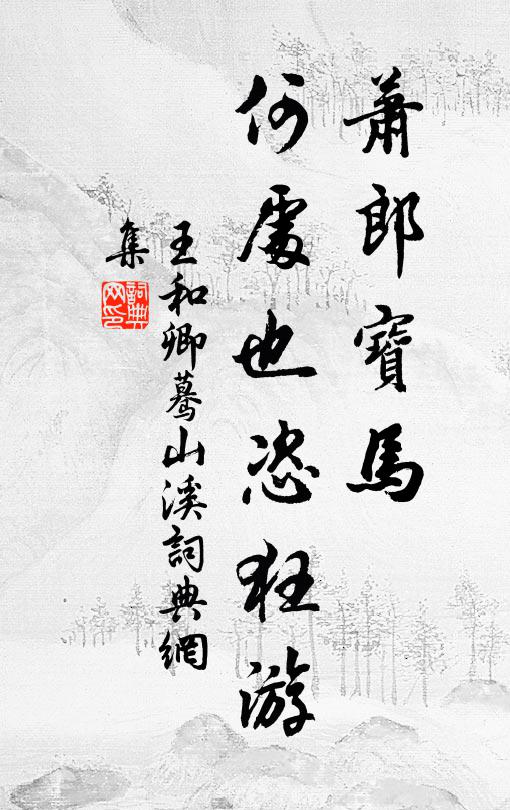 蕭郎寶馬
何處也恣狂游
王和卿蓦山溪詞典網
集
詞典
网印